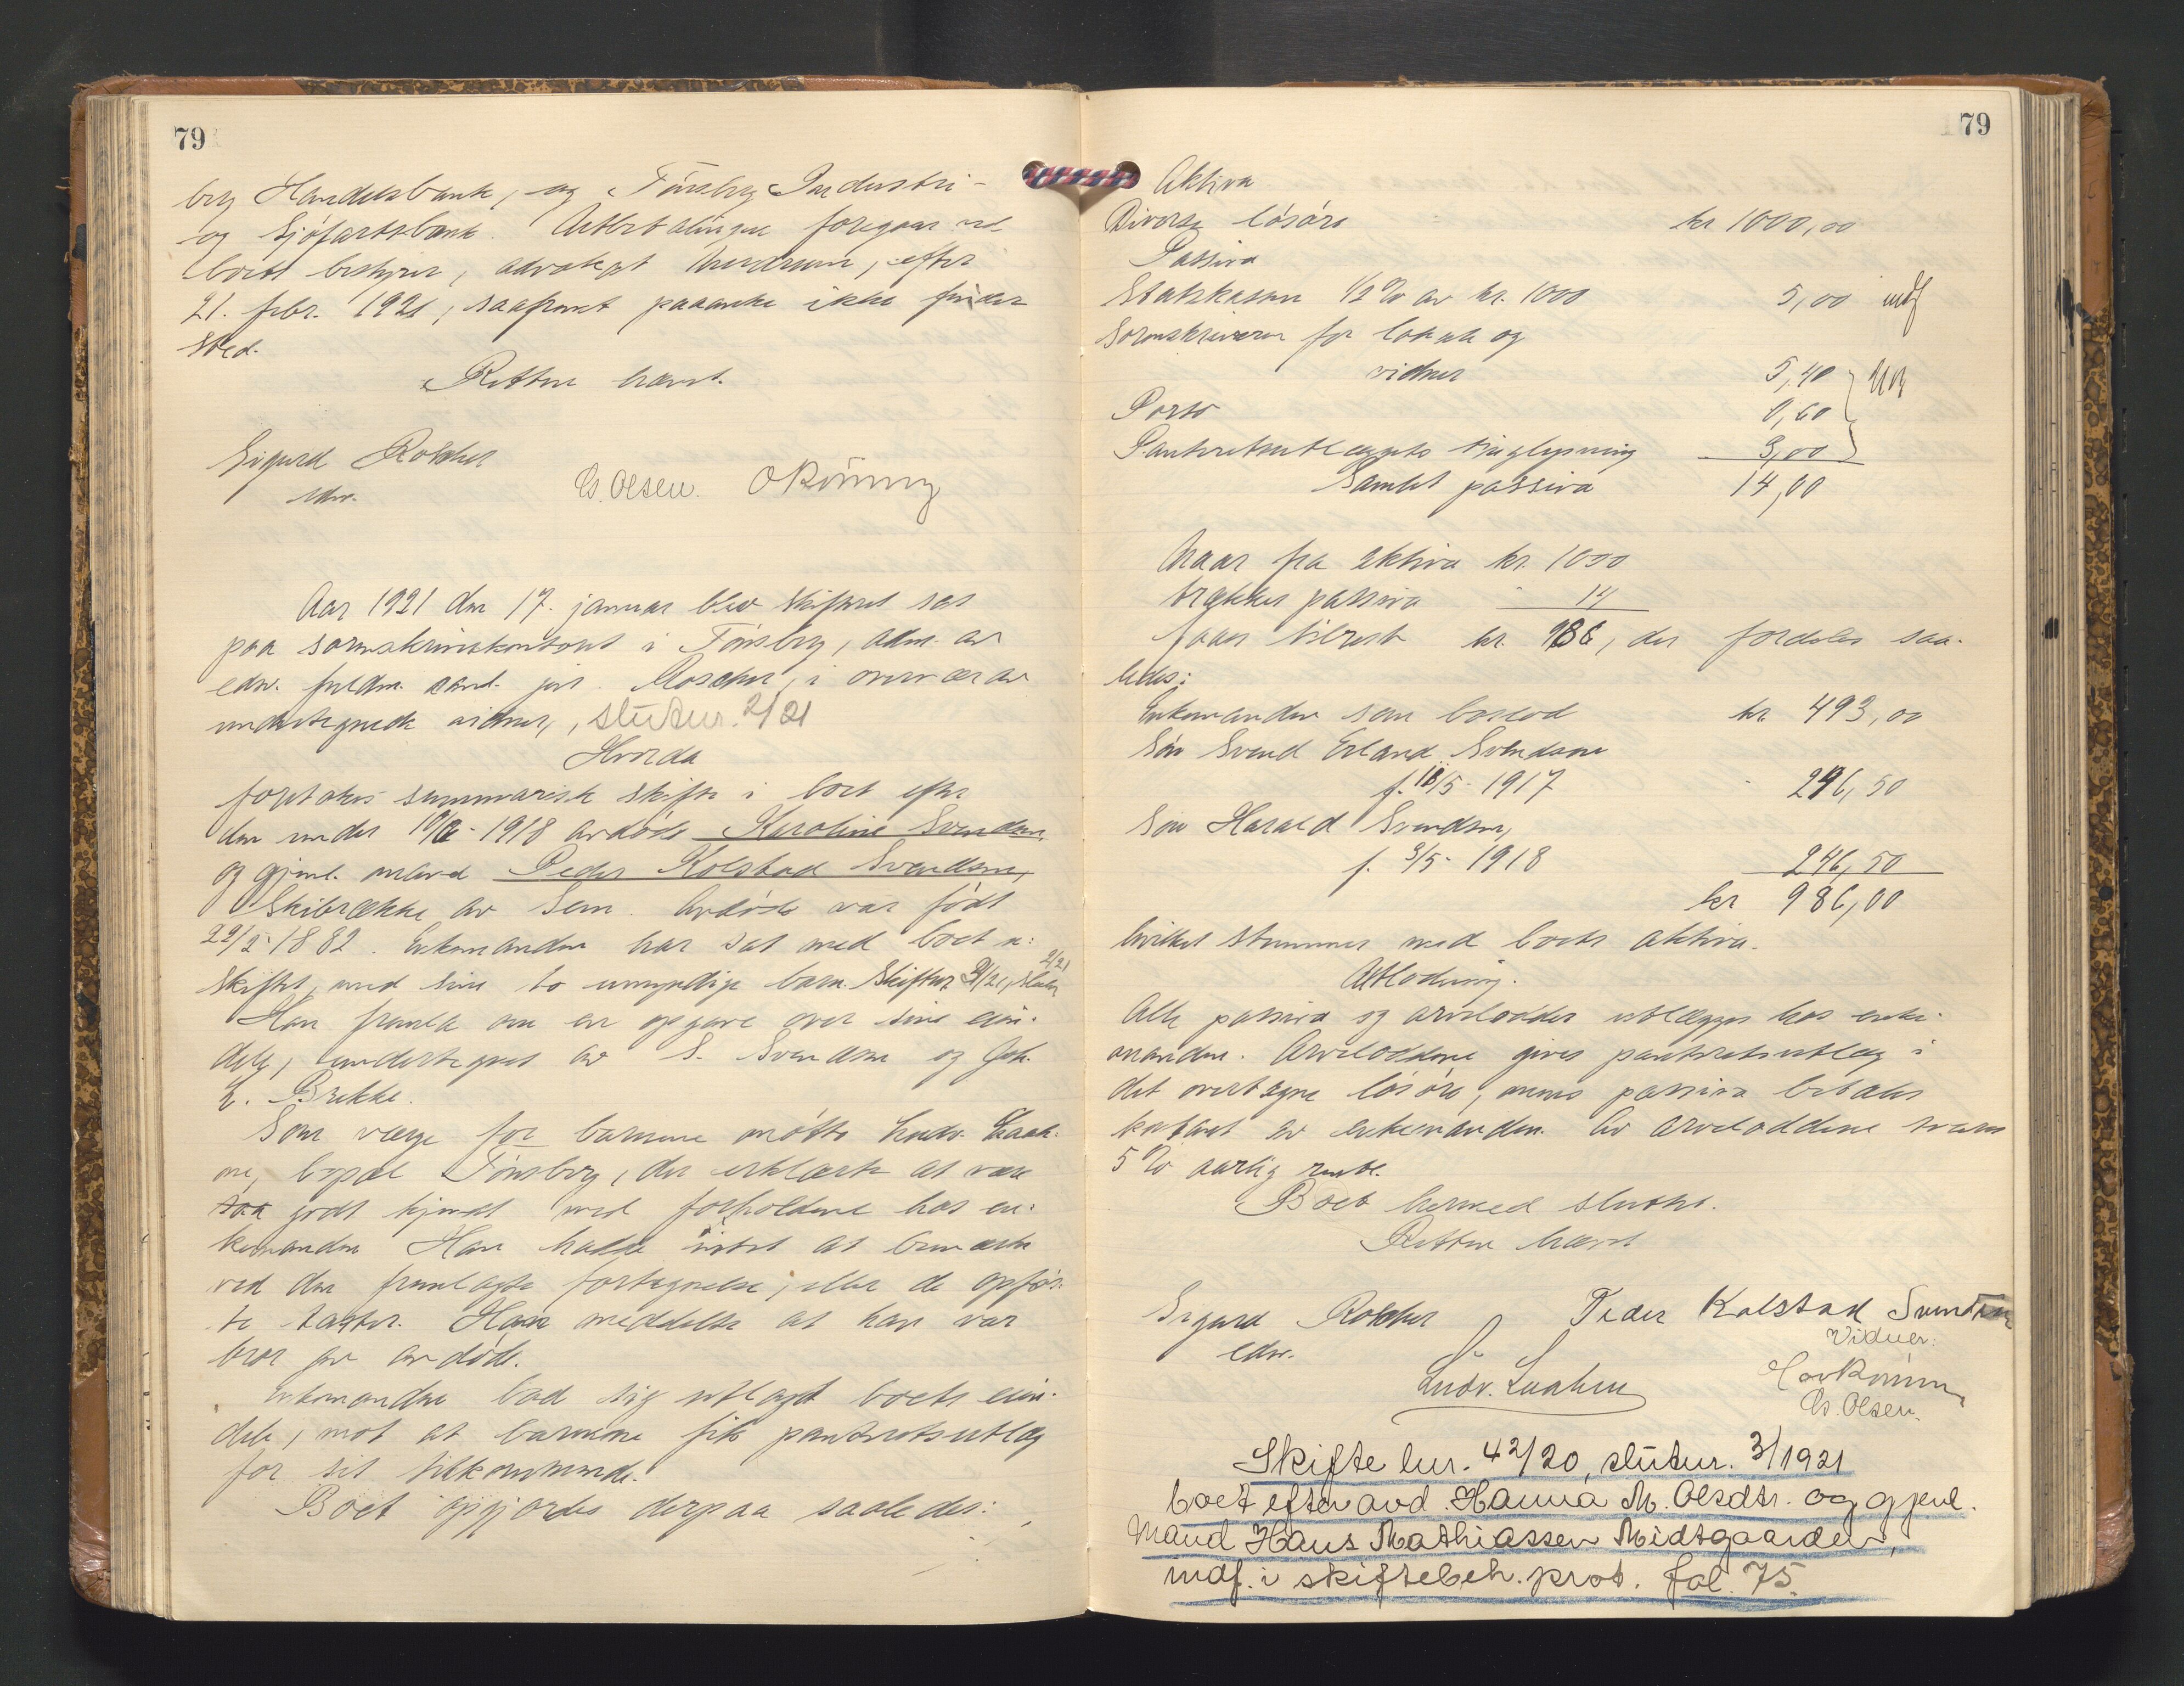 79
berg Handelsbank, og Tönsberg Industri-
og Sjöfartsbank. Utbetalingen foregaar ved
boets bestyrer, advokat, efter
21. febr. 1921, saafremt paaanke ikke finder
sted.
Retten hævet.
Sigurd Roscher
edsv.
G. Olsen. O Rönning
Aar 1921 den 17. januar blev skifteret sat
paa sorenskriverkontoret i Tönsberg, adm. av
edsv. fuldm. cand. jur. Roscher, i overvær av
undertegnede vidner, slutnr. 2/21
Hvorda
foretokes summarisk skifte i boet efter
den under 10/6-1918 avdöde Karoline Svendsen
og gjenl. mand Peder Kolstad Svendsen,
Skibrække av Sem. Avdöde var födt
22/2-1882. Enkemanden har sat med boet u-
skiftet, med sine to umyndige barn. Skiftenr. 2/21, slutnr 2/21
Han fremla en opgave over sine eien-
dele, undertegnet av S. Svendsen og Joh.
E. Brekke.
Som værge for barnene mötte Ludv. Laah-
ne, bopæl Tönsberg, der erklærte at være
saa godt kjendt med forholdene hos en-
kemanden Han hadde intet at bemærke
ved den fremlagte fortegnelse, eller de opför-
te takster. Han meddelte at han var
bror av avdöde.
Enkemanden bad sig utlagt boets eien-
dele, mot at barnene fik panteretsutlæg
for sit tilkommende.
Boet opgjordes derpaa saaledes:
79
Aktiva
Diverse lösöre kr 1000,00
Passiva
Statskassen 1/2 % av kr. 1000 5,00 indf
Sorenskriveren for lokale og
vidner 5,40
Porto 0,60
Panteretsutlæggets tinglysning 3,00
Samlet passiva 14,00
Naar fra aktiva kr. 1000
trækkes passiva " 14
faaes tilrest kr. 986, der fordeles saa-
ledes:
Enkemanden som boslod kr. 493,00
Sön Svend Erland Svendsen
f. 18/5-1917 " 246,50
Sön Harald Svendsen,
f. 3/5-1918 246,50
kr 986,00
hvilket stemmer med boets aktiva.
Utlodning.
Alle passiva og arvelodder utlægges hos enke-
manden. Arveloddene gives panteretsutlæg i
det overtagne lösöre, mens passiva betales
kontant av enkemanden. Av arveloddene svares
5 % aarlig rente.
Boet hermed sluttet.
Retten hævet
Sigurd Roscher
edsv.
Peder Kolstad Svendsen
Ludv. Laahne
Vidner:
O Rönning
G. Olsen.
Skifte lnr. 42/20, slutnr. 3/1921
boet efter avd. Hanna M. Olsdtr. og gjenl.
Mand Hans Mathiassen Midtgaarden,
indf. i skiftebeh. prot. fol. 75.